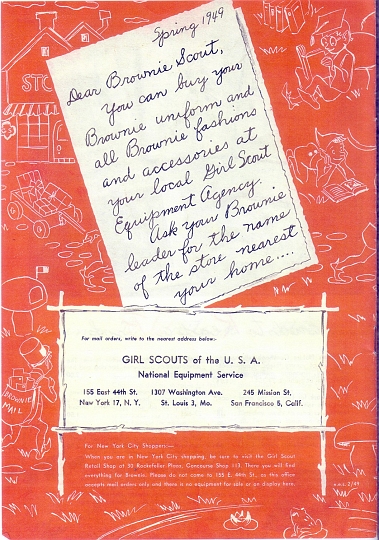 Spring 1949
Dear Brownie Scout,
You can buy your
Brownie uniform and
all Brownie fashions
and accessories at
your local Girl Scout
Equipment Agency.
Ask your Brownie
leader for the name
of the store nearest
your home....
STO
BROWNIE
MAIL
For mail orders, write to the nearest address below:-
GIRL SCOUTS of the U. S. A.
National Equipment Service
155 East 44th St. 1307 Washington Ave. 245 Mission St.
New York 17, N. Y. St. Louis 3, Mo. San Francisco 5, Calif.
For New York City Shoppers:—
When you are in New York City shopping, be sure to visit the Girl Scout
Retail Shop at 30 Rockefeller Plaza, Concourse Shop 113. There you will find
everything for Brownie. Please do not come to 155 E. 44th St. as this office
accepts mail orders only and there is no equipment for sale or on display here.
2/49